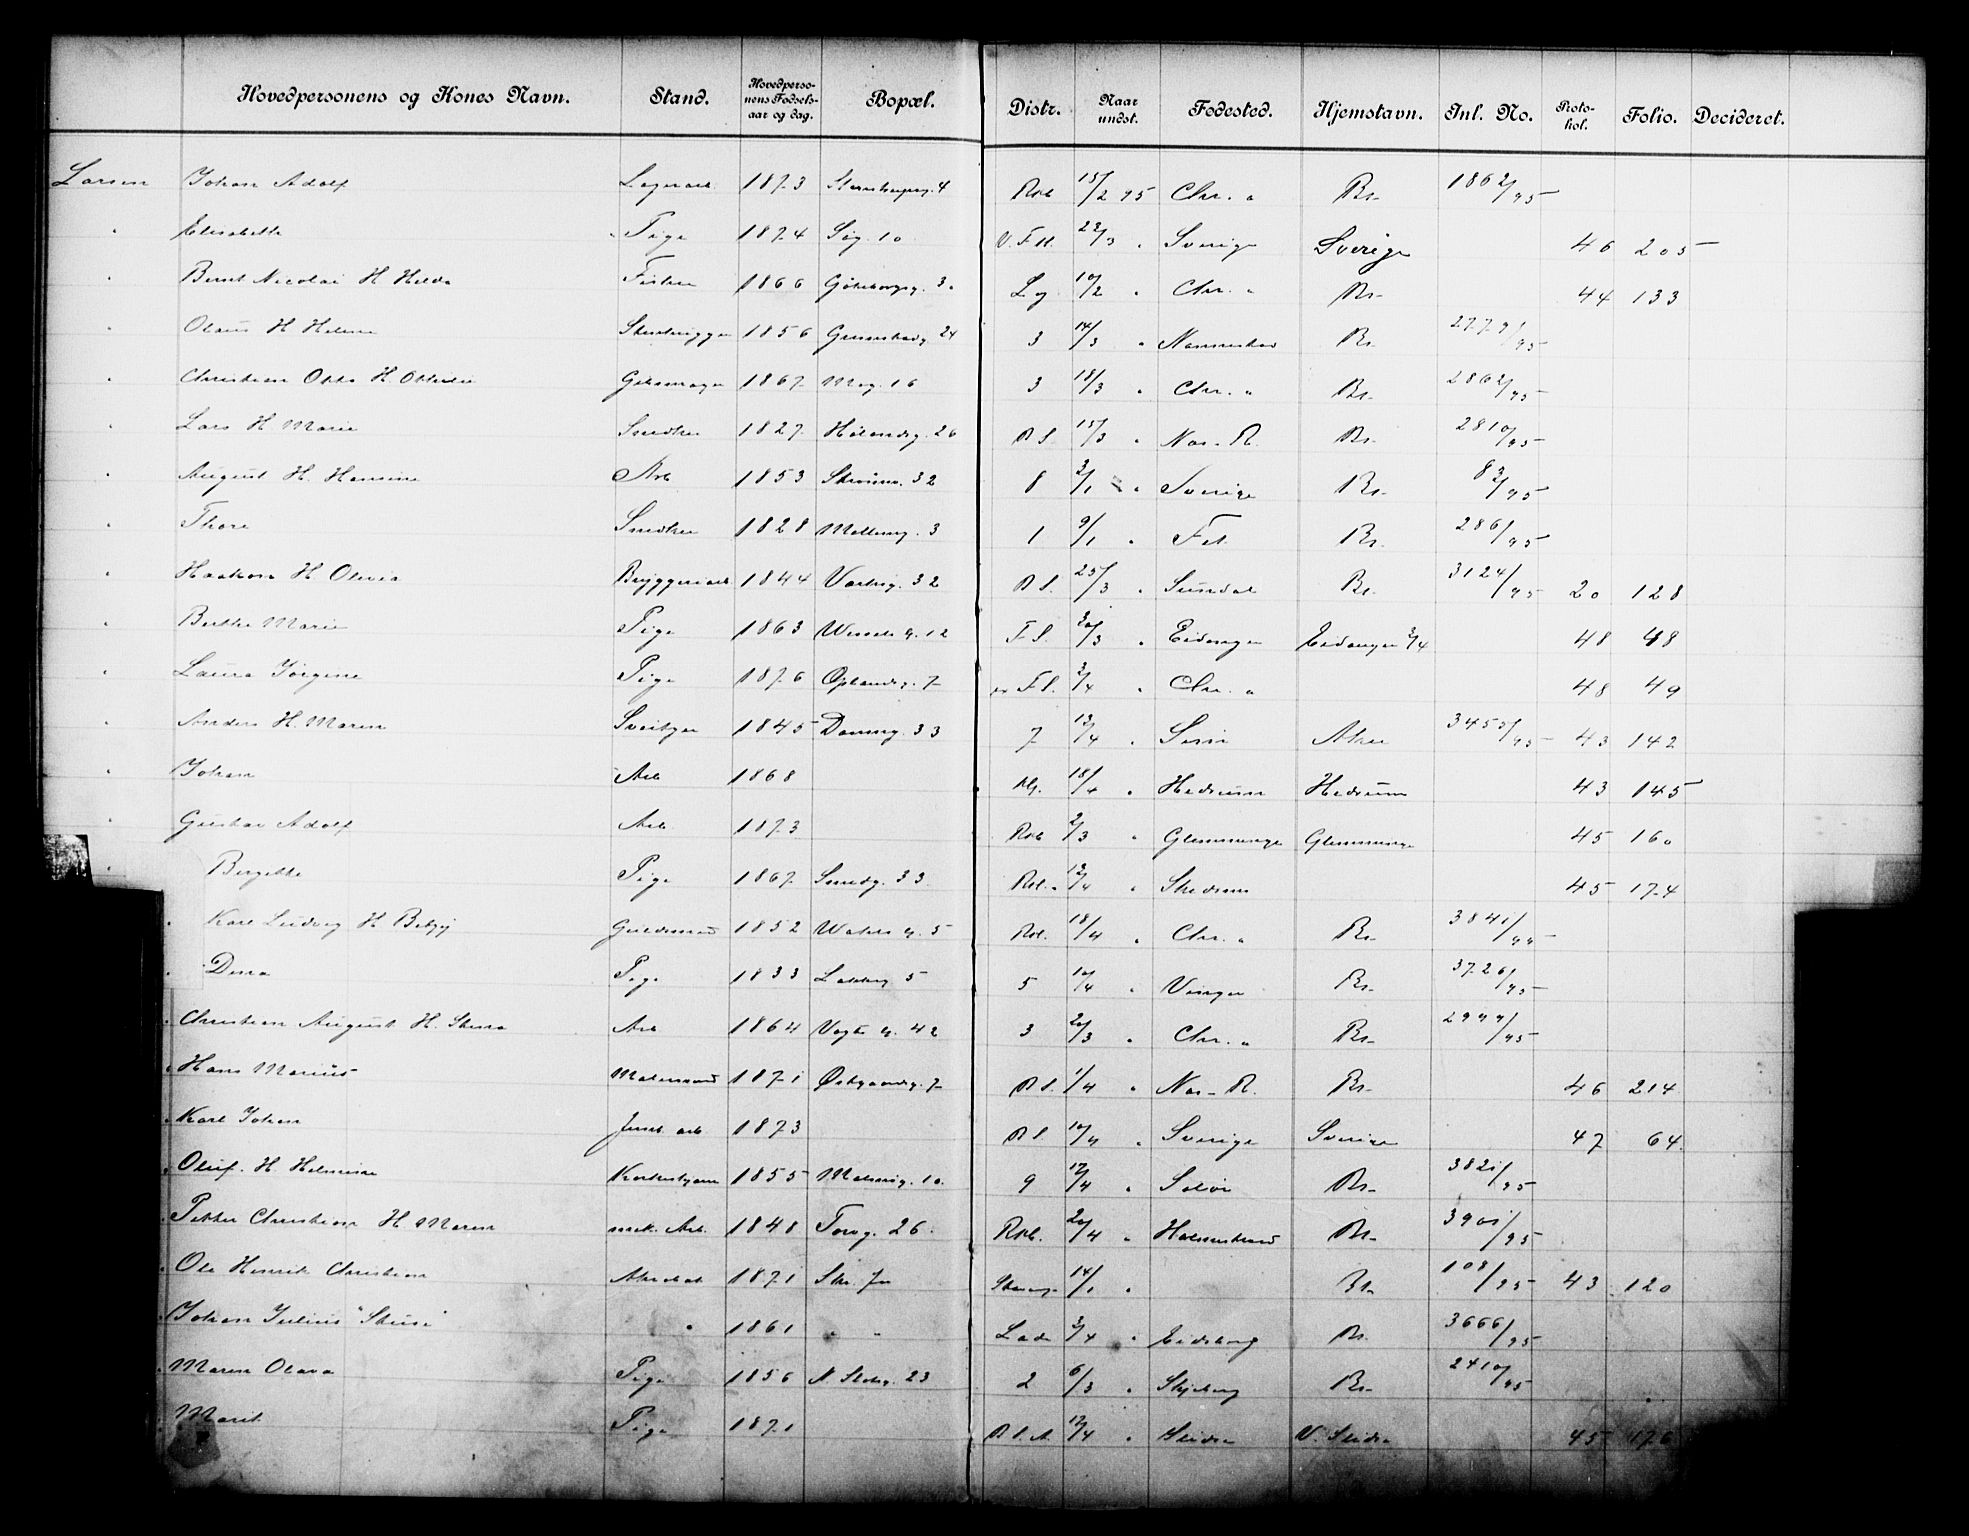 Hovedpersonens og Kones Navn. Stand. Hovedperso-nens Fødsels-aar og dag. Bopæl. Distr. Naar undst. Fødested. Hjemstavn. Inl. No. Proto-kol. Folio. Decideret.
Larsen Johan Adolf Lagerarb. 1873 4 Rvb 15/2 95 Chr. " Br- 1862/95
" Elisabeth Pige 1874 Sig. 10 V. F.H. 22/3 " Sverige Sverige 46 205
" Bernt Nicolai H Hilda Fisker 1866 Göteborgg. 3. Lg. 10/2 " Chr. " Br- 44 133
" Olaus H Helene 1856 24 3 14/3 " Br- 2779/95
" Christian Otto H Ottilie 1867 Mog. 16 3 18/3 " Chr. " Br- 2862/95
" Lars H Marie Snedker 1827 Hølandsg. 26 B S. 15/3 " Nas-R. Br- 2810/95
" August H. Hansine Arb 1853 32 8 3/1 " Sverige Br- 83/95
" Thore Snedker 1828 Møllerg. 3 1 9/1 " Fet Br. 286/95
" Haakon H Olivia Bryggeriarb 1844 32 B S. 25/3 " Sundal Br. 3124/95 20 128
" Berthe Marie Pige 1863 Wessels g. 12 F S. 30/3 " Eidanger Eidanger 3/4 48 48
" Laura Jörgine Pige 1876 Oplandsg. 7 F S. 3/4 " Chr. " 48 49
" Anders H. Maren 1845 33 7 13/4 " Aker 3455/95 43 142
" Johan Arb 1868 18/4 " Hedrum Hedrum 43 145
" Gustav Adolf Arb. 1873 Rvb 2/3 " Glemminge Glemminge 45 160
" Bergitte Pige 1867 Smedg. 33 12/4 " Skedsmo 45 174
" Karl Ludvig H Betzy Guldsmed 1852 g. 5 Rvb. 18/4 " Chr. " Br- 3841/95
" Dina Pige 1833 Lakkeg 5 5 10/4 " Vinger Br- 3726/95
" Christian August H. Arb 1864 Vogts g. 42 3 20/3 " Chr. " Br- 2999/95
" Hans Marius Malersvend 1871 Østgaardsg. 7 B S. 1/4 " Nas-R. Br- 46 214
" Karl Johan Jernb. arb. 1873 B S. 10/4 " Sverige Sverige 47 64
" Oluf. H. Helmine 1855 10. 9 17/4 " Solør Br- 3821/95
" Petter Christian H Maren mek. Arb. 1848 Torvg. 26. Rvb. 20/4 " Holmestrand Br- 3901/95
" Ole Henrik Christian 1871 14/1 " Br- 108/95 43 120
" Johan Julius " 1861 " " Lade 3/4 " Eidsberg Br- 3666/95
" Maren Olava Pige 1856 N. Slotsg. 23 2 6/3 " Skjeberg Br- 2410/95
" Marit Pige 1871 B. S. A. 17/4 " Slidre V. Slidre 45 176